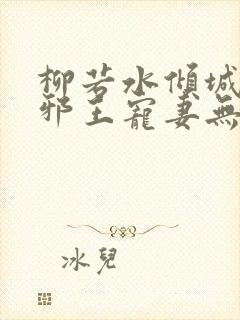 柳若水傾城
邪王寵妻無
冰兒